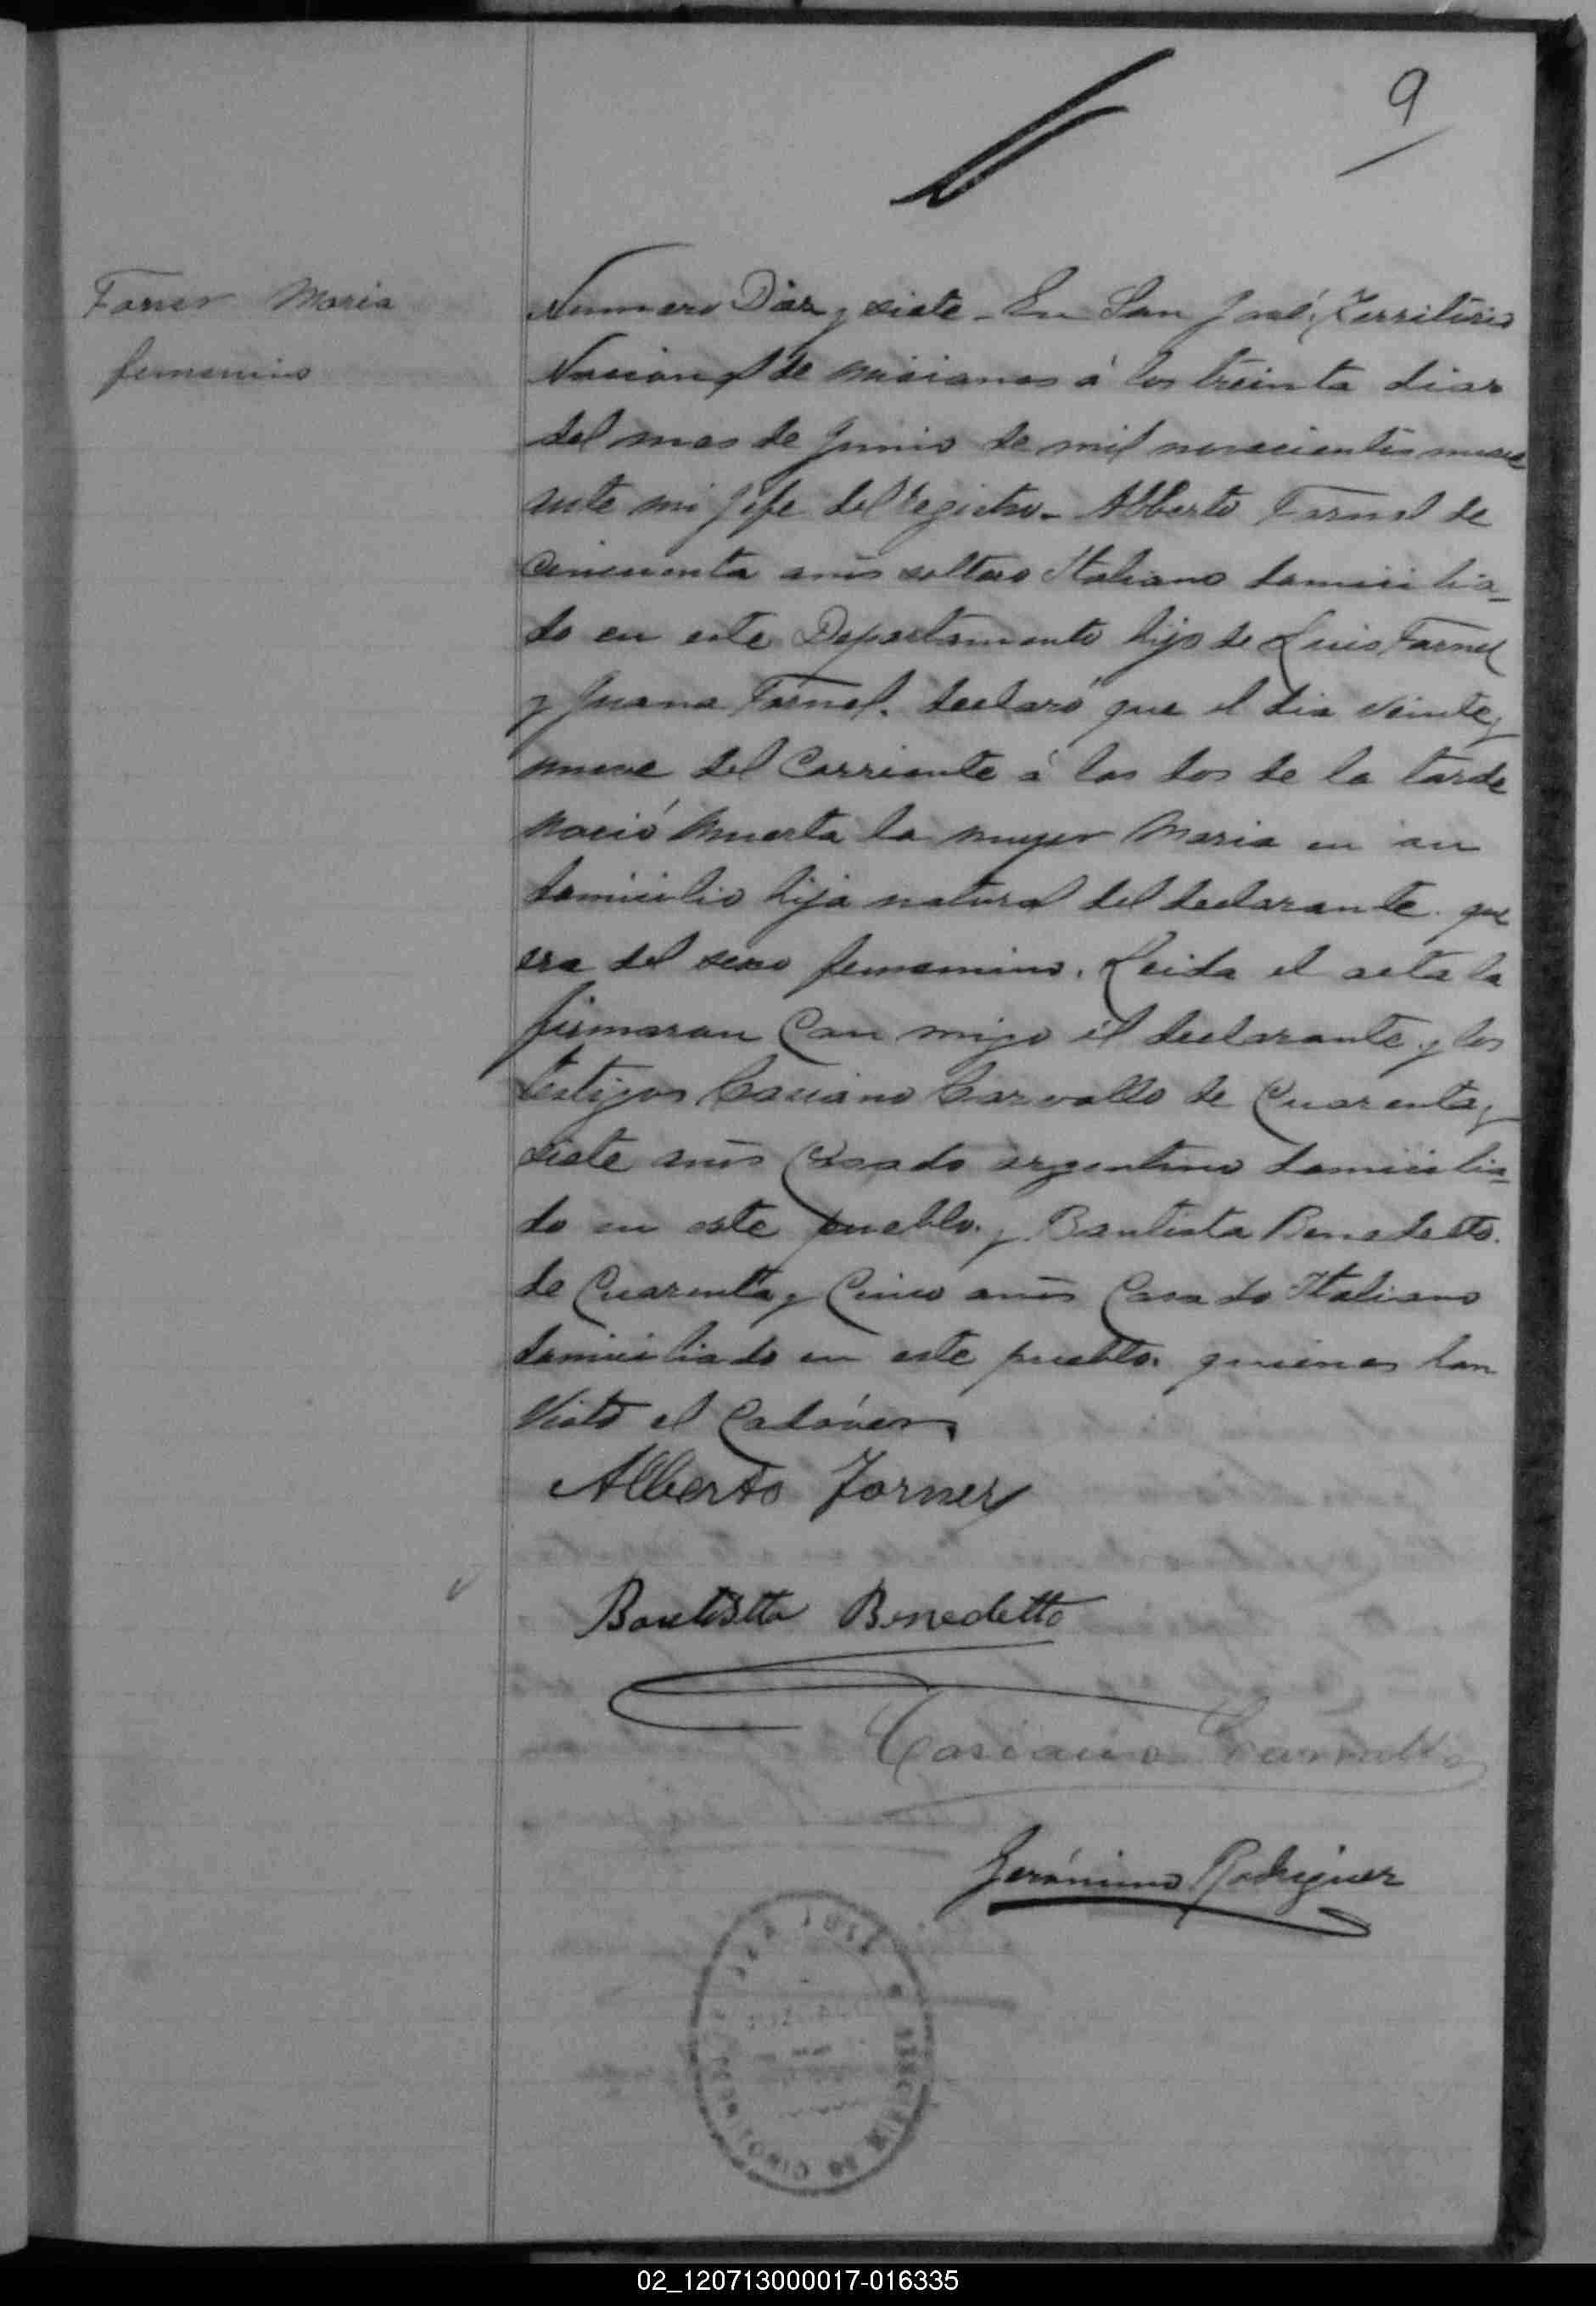 9
Forner Maria
femenino
Numero Diez y siete - En San José, Territorio
Nacional de Misiones á los treinta dias
del mes de Junio de mil novecientos nueve
ante mi Jefe del registro - Alberto Fornel de
Cincuenta años soltero Italiano domicilia-
do en este Departamento hijo de Luis Fornel
y Juana Fornel. declaró que el dia veinte y
nueve del Corriente á las dos de la tarde
nació muerta la mujer Maria en su
domicilio hija natural del declarante. que
era del sexo femenino. Leida el acta la
firmaron Con migo él declarante y los
testigos Casiano Carvallo de Cuarenta y
siete años Casado argentino domicilia-
do en este pueblo. y Bautista Benedetto.
de Cuarenta y Cinco años Casado Italiano
domiciliado en este pueblo. quienes han
Visto el Cadáver.
Alberto Forner
Bautistta Benedetto
Casiano Carvallo
Jerónimo Rodriguez
SAN JOSÉ
TERRITORIO DE MISIONES
02_120713000017-016335